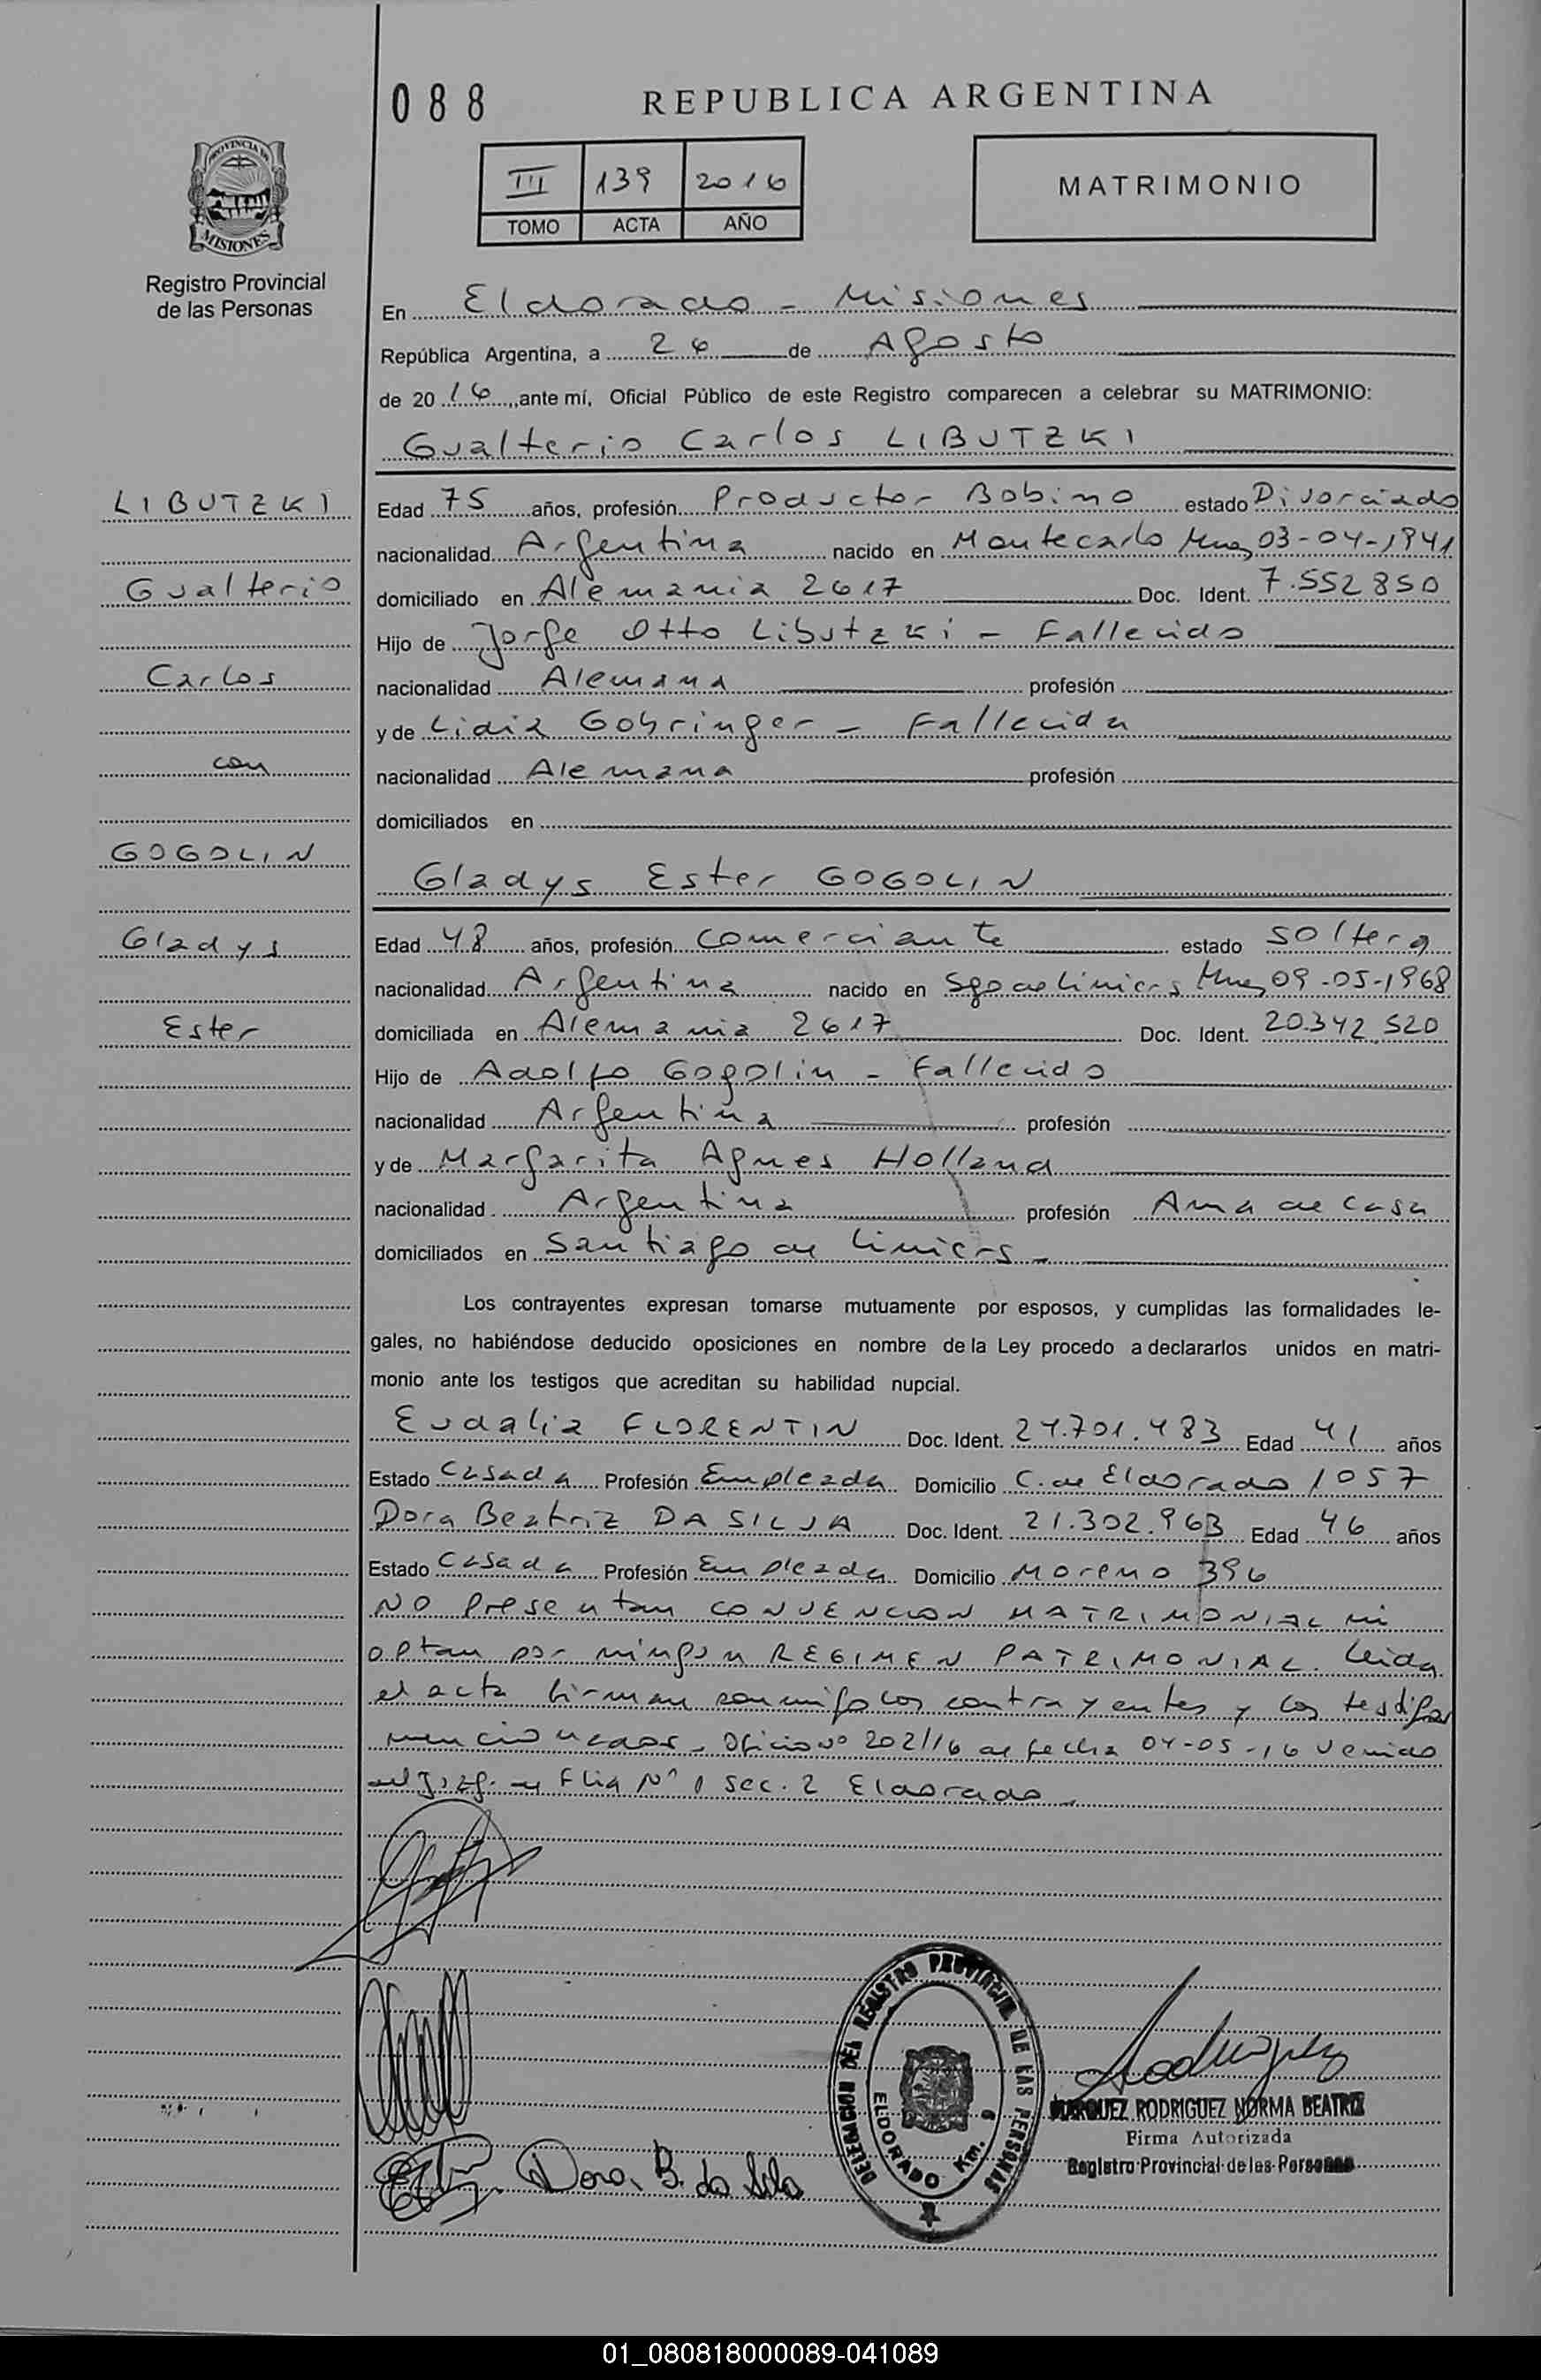 088
REPUBLICA ARGENTINA
III 139 2016
TOMO ACTA AÑO
MATRIMONIO
PROVINCIA DE
MISIONES
Registro Provincial
de las Personas
En Eldorado - Misiones
República Argentina, a 26 de Agosto
de 2016, ante mí, Oficial Público de este Registro comparecen a celebrar su MATRIMONIO:
Gualterio Carlos LIBUTZKI
LIBUTZKI
Gualterio
Carlos
con
GOGOLIN
Gladys
Ester
Edad 75 años, profesión Productor Bobino estado Divorciado
nacionalidad Argentina nacido en Montecarlo Mnes 03-04-1941
domiciliado en Alemania 2617 Doc. Ident. 7.552850
Hijo de Jorge Otto Libutzki - Fallecido
nacionalidad Alemana profesión
y de Lidia Gohringer - Fallecida
nacionalidad Alemana profesión
domiciliados en
Gladys Ester GOGOLIN
Edad 48 años, profesión Comerciante estado soltera
nacionalidad Argentina nacido en Sgo de Liniers Mnes 09-05-1968
domiciliada en Alemania 2617 Doc. Ident. 20.342.520
Hijo de Adolfo Gogolin - Fallecido
nacionalidad Argentina profesión
y de Margarita Agnes Holland
nacionalidad Argentina profesión Ama de casa
domiciliados en Santiago de Liniers -
Los contrayentes expresan tomarse mutuamente por esposos, y cumplidas las formalidades le-
gales, no habiéndose deducido oposiciones en nombre de la Ley procedo a declararlos unidos en matri-
monio ante los testigos que acreditan su habilidad nupcial.
Eudalia FLORENTIN Doc. Ident. 24.701.483 Edad 41 años
Estado Casada Profesión Empleada Domicilio C. de Eldorado 1057
Dora Beatriz DA SILVA Doc. Ident. 21.302.963 Edad 46 años
Estado Casada Profesión Empleada Domicilio Moreno 396
No presentan CONVENCION MATRIMONIAL ni
optan por ningun REGIMEN PATRIMONIAL. Leida
el acta firman conmigo los contrayentes y los testigos
mencionados - Oficio Nº 202/16 de fecha 04-05-16 venido
del Juzg. de Flia Nº 1 sec. 2 Eldorado -
Dora B. da Silva
DELEGACION DEL REGISTRO PROVINCIAL DE LAS PERSONAS
ELDORADO Km.
MARQUEZ RODRIGUEZ NORMA BEATRIZ
Firma Autorizada
Registro Provincial de las Personas
01_080818000089-041089